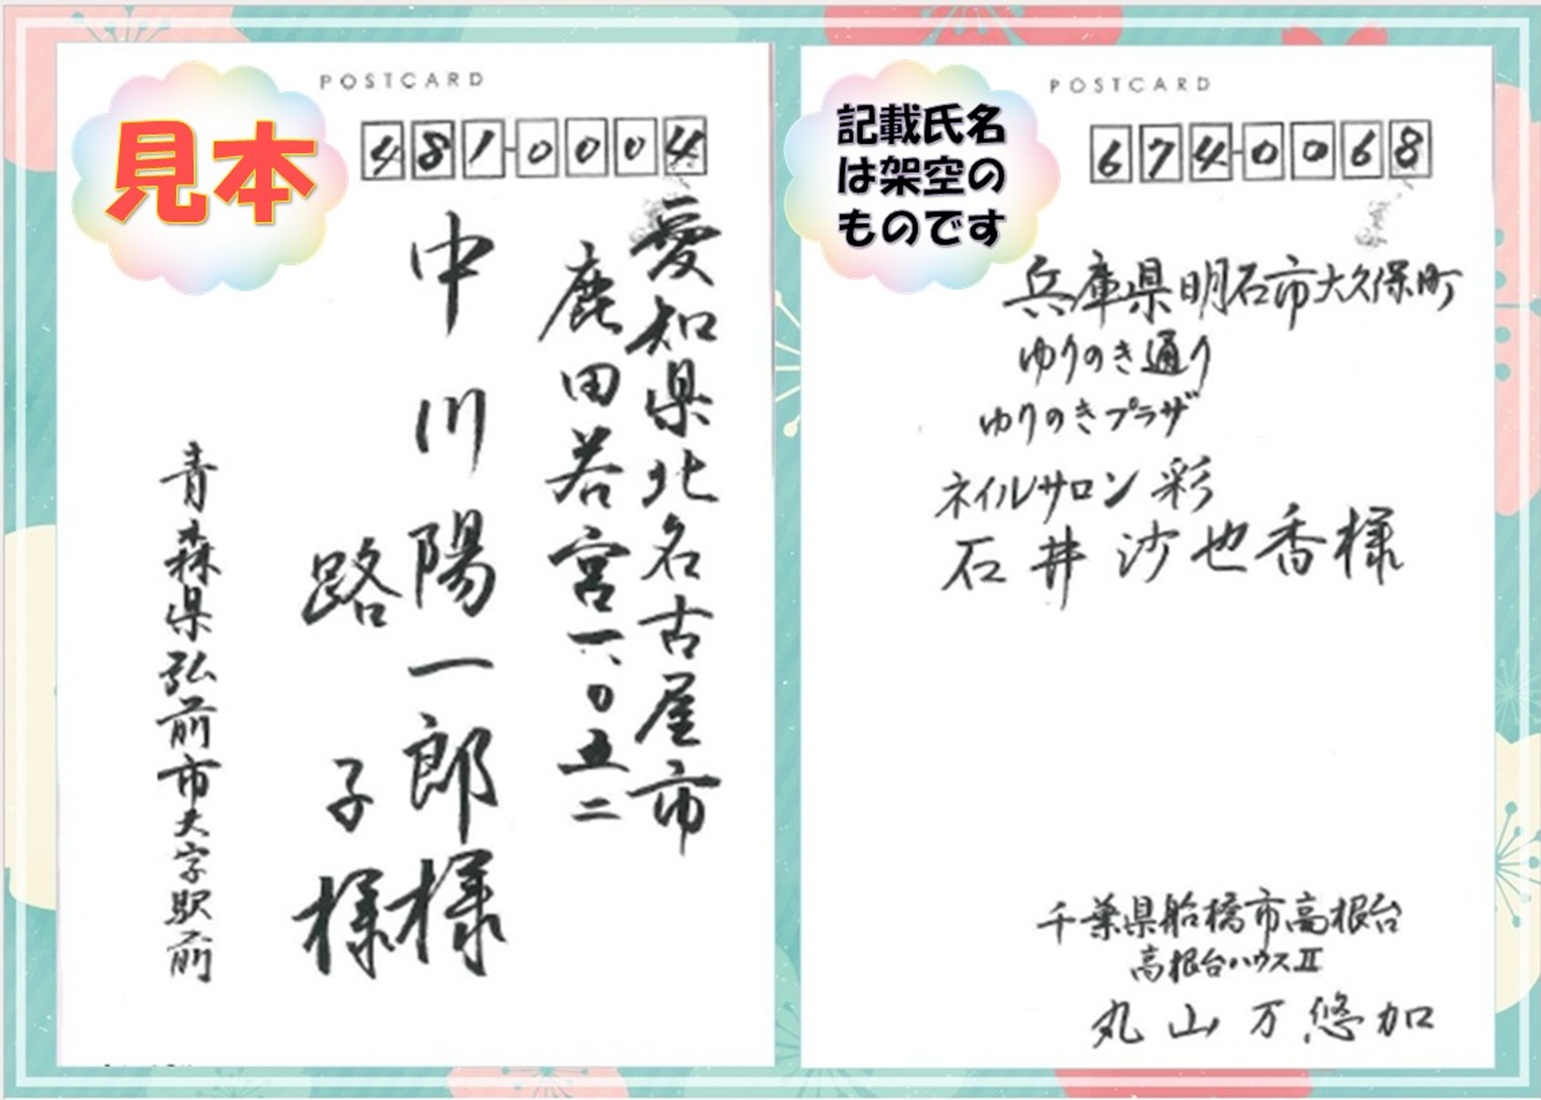 POSTCARD
見本
481-0004
愛知県北名古屋市
鹿田若宮一、〇五二
中川陽一郎様
路子様
青森県弘前市大字駅前
POSTCARD
記載氏名
は架空の
ものです
674-0068
兵庫県明石市大久保町
ゆりのき通り
ゆりのきプラザ
ネイルサロン彩
石井沙也香様
千葉県船橋市高根台
高根台ハウスII
丸山万悠加